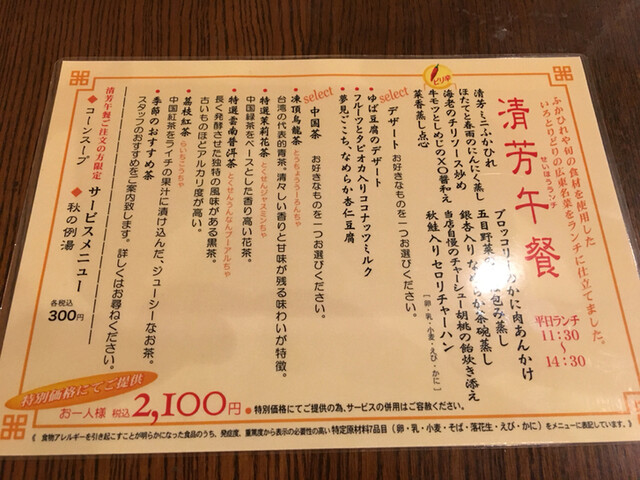 ふかひれや旬の食材を使用した
いろとりどりの広東名菜をランチに仕立てました。
清芳午餐
せいほうランチ
平日ランチ
11:30
～
14:30
清芳ミニふかひれ
ほたてと春雨のにんにく蒸し
ピリ辛
海老のチリソース炒め
牛モツとしめじのXO醤和え
菜香蒸し点心
ブロッコリーのかに肉あんかけ
五目野菜の 包み蒸し
銀杏入りなめらか茶碗蒸し
当店自慢のチャーシュー胡桃の飴炊き添え
秋鮭入りセロリチャーハン
[卵・乳・小麦・えび・かに]
select デザート お好きなものを一つお選びください。
ゆば豆腐のデザート
フルーツとタピオカ入りココナッツミルク
夢見ごこち、なめらか杏仁豆腐
select 中国茶 お好きなものを一つお選びください。
◆凍頂烏龍茶 とうちょううーろんちゃ
台湾の代表的青茶。清々しい香りと甘味が残る味わいが特徴。
◆特選茉莉花茶 とくせんジャスミンちゃ
中国緑茶をベースとした香り高い花茶。
◆特選雲南普洱茶 とくせんうんなんプーアルちゃ
長く発酵させた独特の風味がある黒茶。
古いものほどアルカリ度が高い。
◆荔枝紅茶 らいちこうちゃ
中国紅茶をライチの果汁に漬け込んだ、ジューシーなお茶。
◆季節のおすすめ茶
スタッフのおすすめをご案内致します。詳しくはお尋ねください。
清芳午餐ご注文の方限定 サービスメニュー
◆コーンスープ ◆秋の例湯
各税込
300円
特別価格にてご提供
お一人様 税込 2,100円 ●特別価格にてご提供の為、サービスの併用はご容赦ください。
《食物アレルギーを引き起こすことが明らかになった食品のうち、発症度、重篤度から表示の必要性の高い特定原材料7品目（卵・乳・小麦・そば・落花生・えび・かに）をメニューに表記しています。》